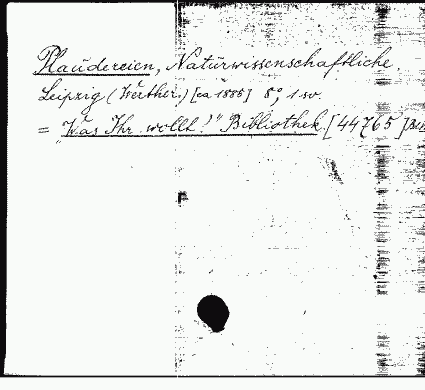 Plaudereien, Naturwissenschaftliche
Leipzig (Werther.) [ca 1885] 8°, 1 sv.
= "Was Ihr wollt!" Bibliothek. [44765]